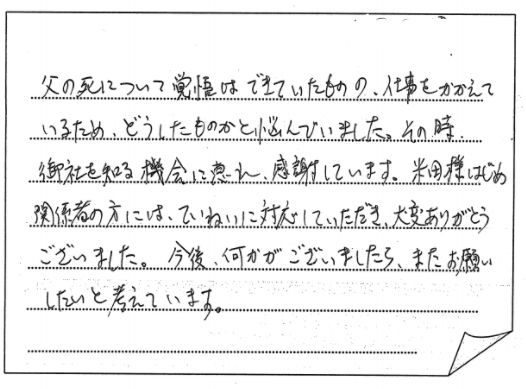 父の死について覚悟はできていたものの、仕事をかかえて
いるため、どうしたものかと悩んでいました。その時、
御社を知る機会に恵れ、感謝しています。米田様はじめ
関係者の方には、ていねいに対応していただき、大変ありがとう
ございました。今後、何かがございましたら、またお願い
したいと考えています。